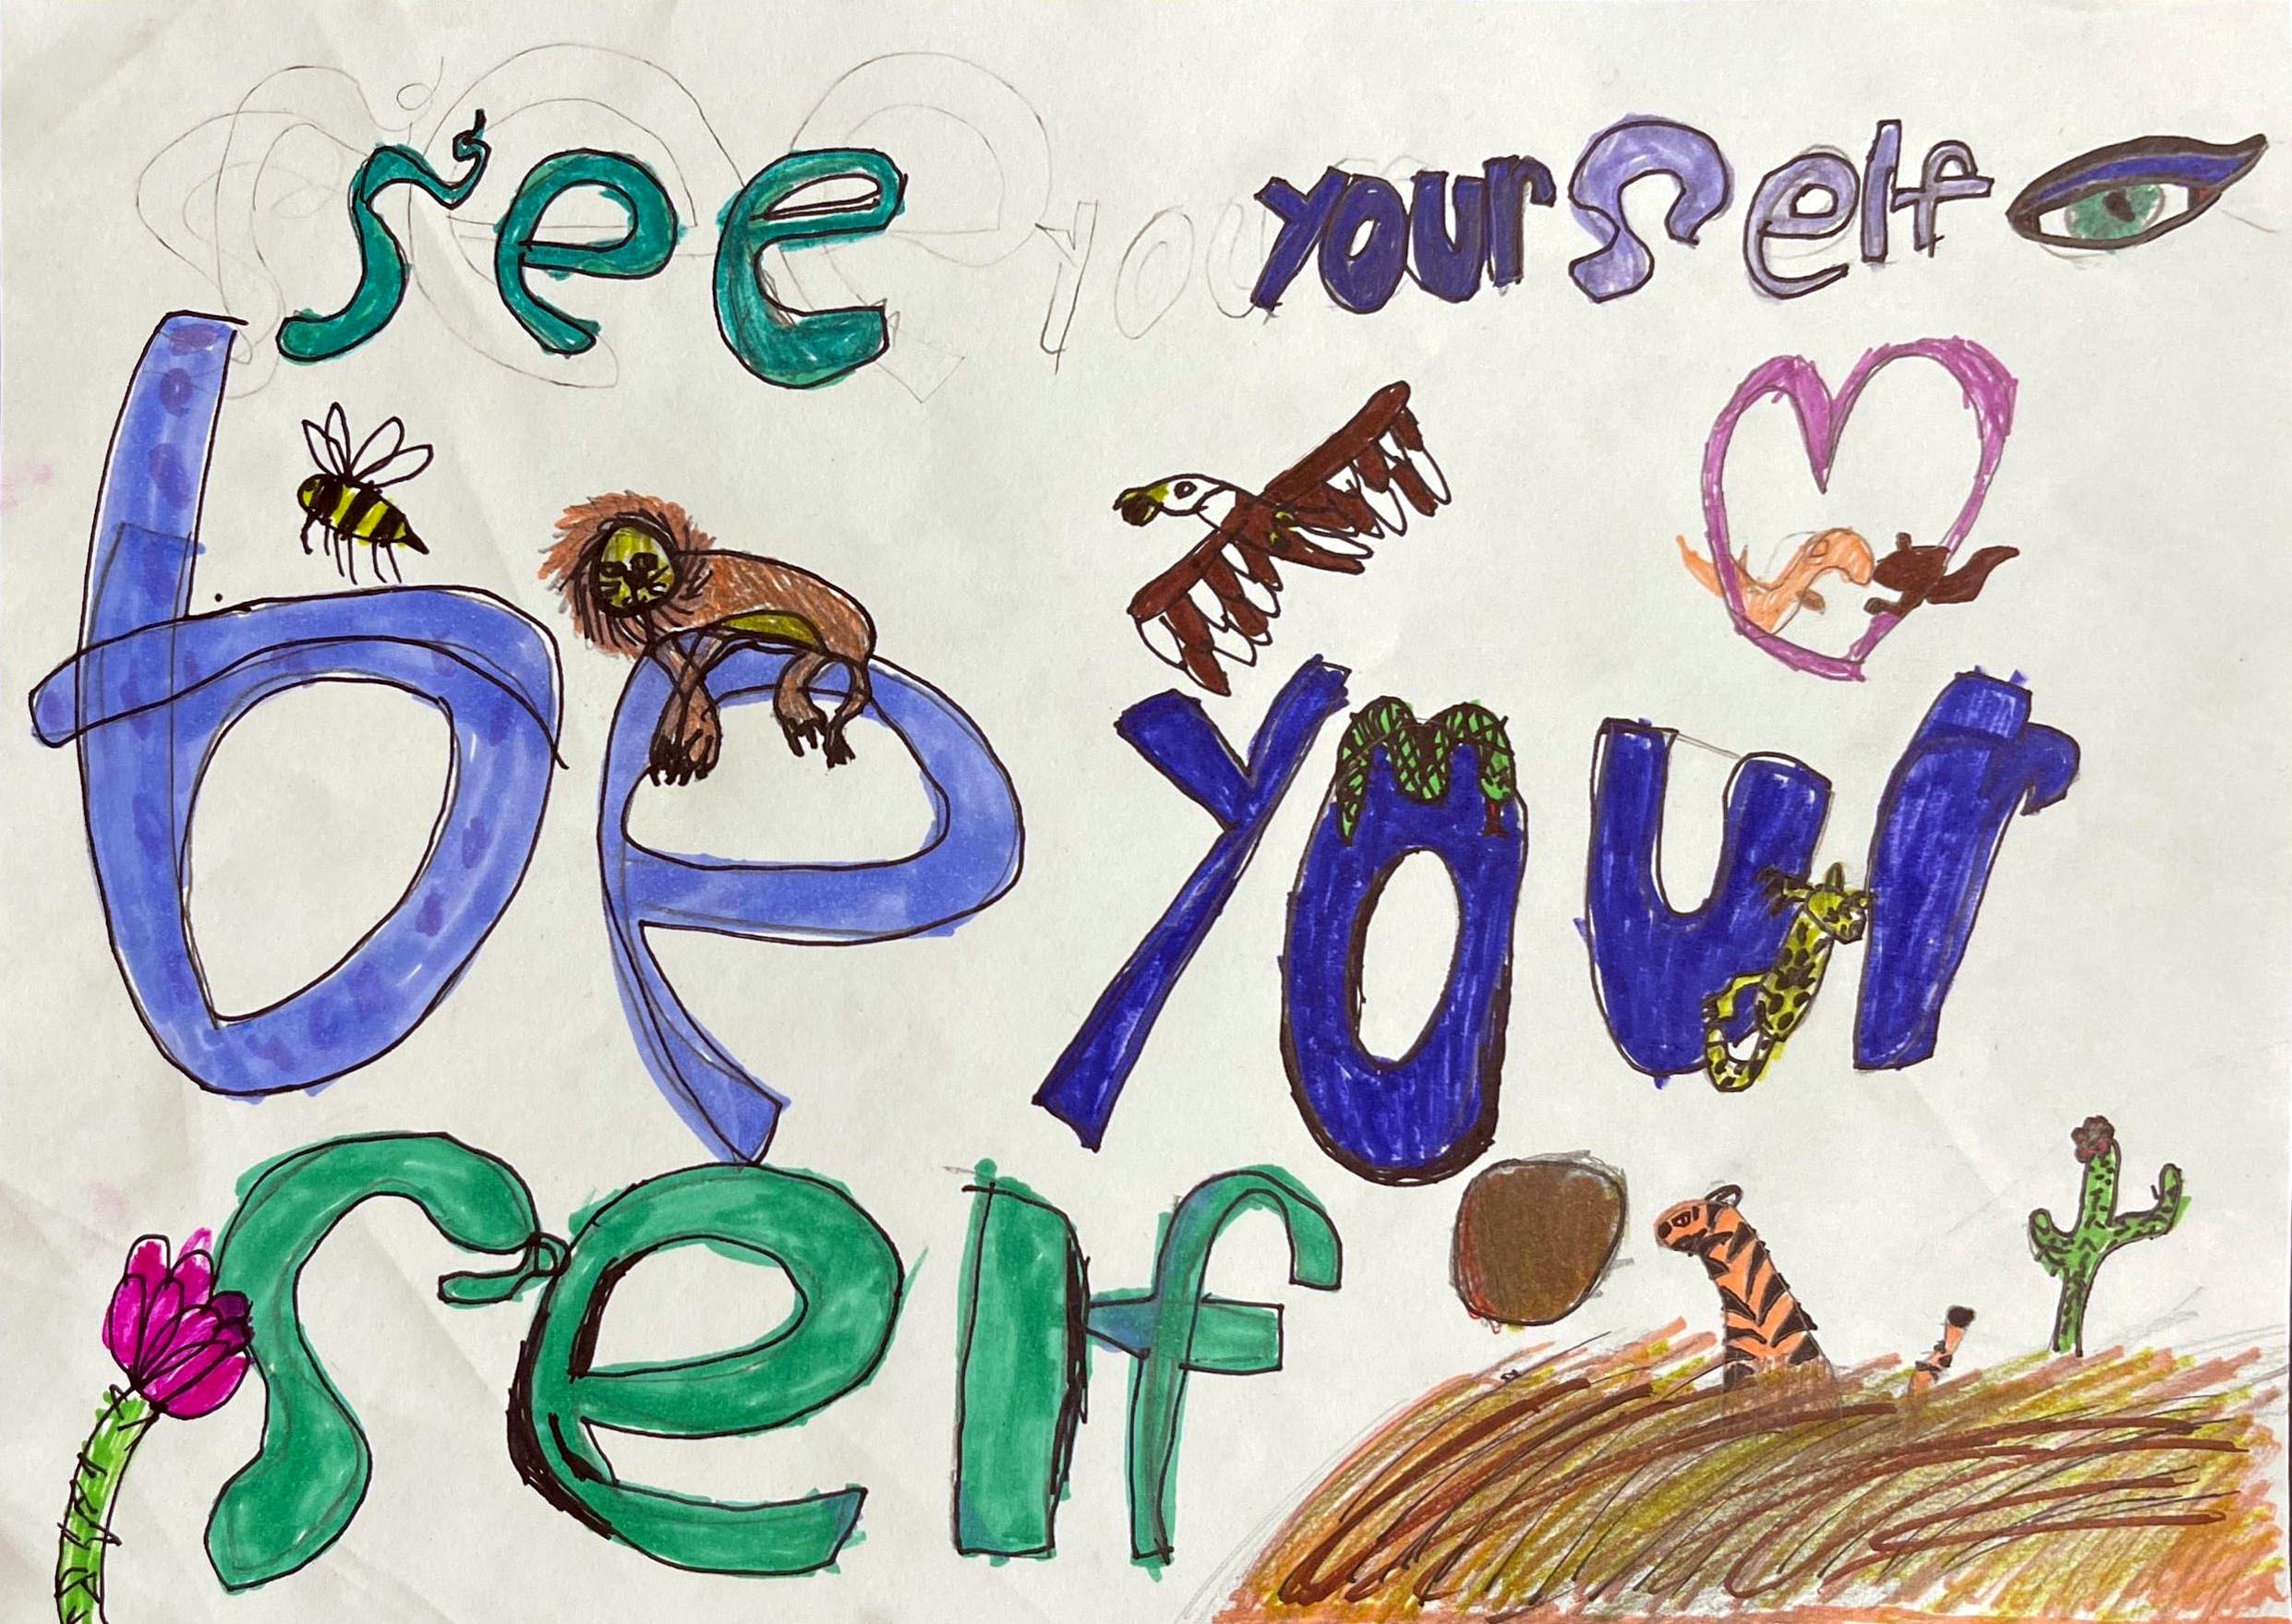 see yourself
be your
self